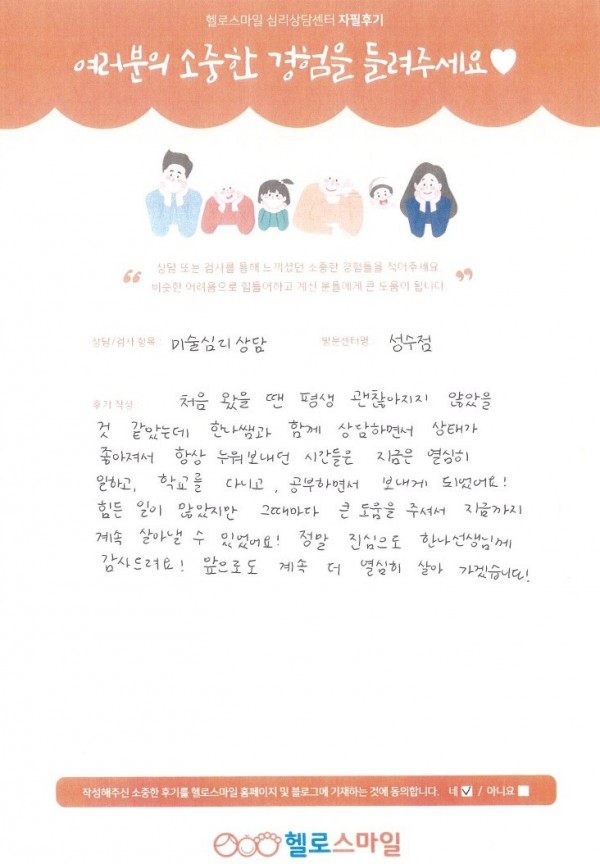 헬로스마일 심리상담센터 자필후기
여러분의 소중한 경험을 들려주세요♥
“ 상담 또는 검사를 통해 느끼셨던 소중한 경험들을 적어주세요.
비슷한 어려움으로 힘들어하고 계신 분들에게 큰 도움이 됩니다. ”
상담/검사 항목 : 미술심리상담 방문센터명 : 성수점
후기 작성 처음 왔을 땐 평생 괜찮아지지 않았을
것 같았는데 한나쌤과 함께 상담하면서 상태가
좋아져서 항상 누워보내던 시간들은 지금은 열심히
일하고, 학교를 다니고, 공부하면서 보내게 되었어요!
힘든 일이 많았지만 그때마다 큰 도움을 주셔서 지금까지
계속 살아낼 수 있었어요! 정말 진심으로 한나선생님께
감사드려요! 앞으로도 계속 더 열심히 살아 가겠습니다!
작성해주신 소중한 후기를 헬로스마일 홈페이지 및 블로그에 기재하는 것에 동의합니다. 네 ☑ / 아니요 □
헬로스마일